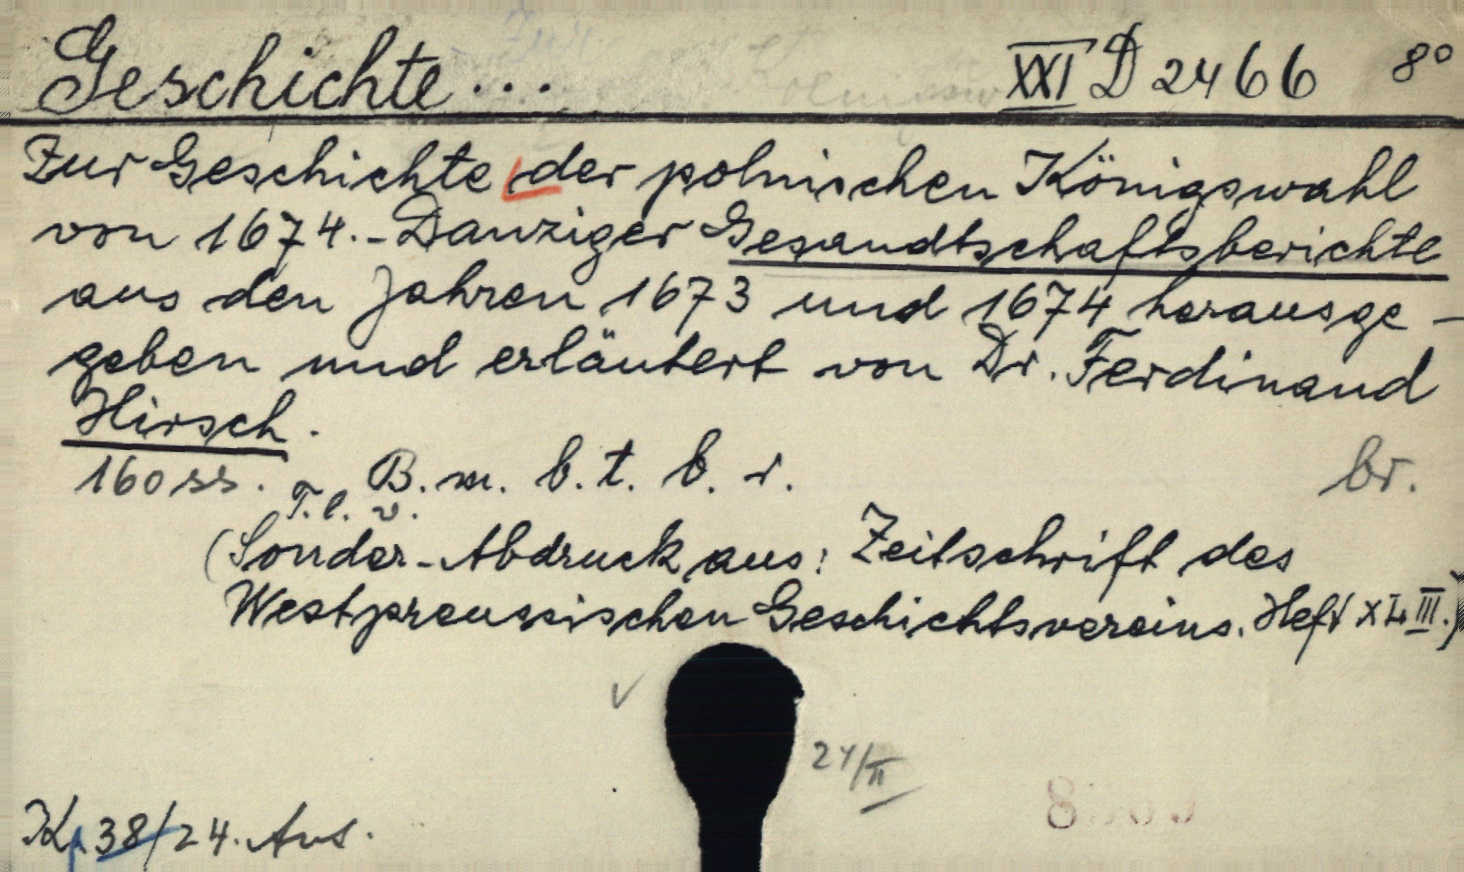 Geschichte... XXI D 2466 8°
Zur Geschichte der polnischen Königswahl
von 1674.-Danziger Gesandtschaftsberichte
aus den Jahren 1673 und 1674 herausge-
geben und erläutert von Dr. Ferdinand
Hirsch.
160 ss. B. m. b. t. b. r. br.
T. l. v.
(Sonder-Abdruck aus: Zeitschrift des
Westpreussischen Geschichtsvereins. Heft XLIII.)
24/II
K. 38/24. Aus.